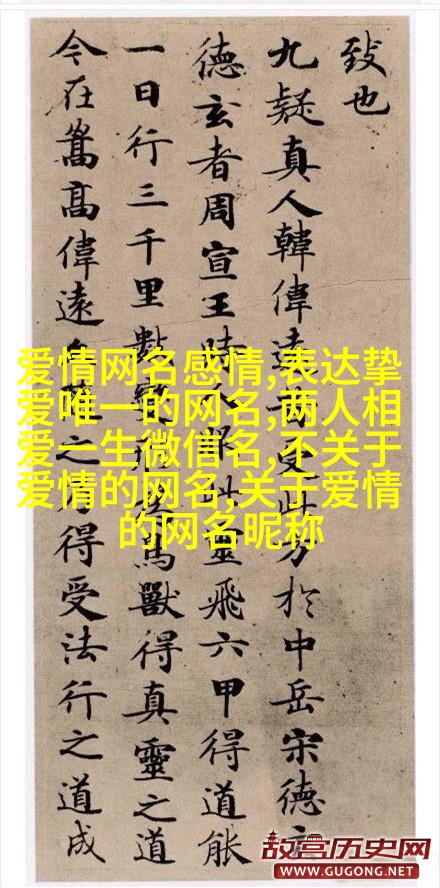 致也
九疑真人韓偉遠昔受此方於中岳宋德玄
德玄者周宣王時服此靈飛六甲得道能
一日行三千里數變形為鳥獸得真靈之道
今在嵩高偉遠之得受法行之道成
爱情网名感情,表达挚
爱唯一的网名,两人相
爱一生微信名,不关于
爱情的网名,关于爱情
的网名昵称
故宫历史网
WWW.GUGONG.NET